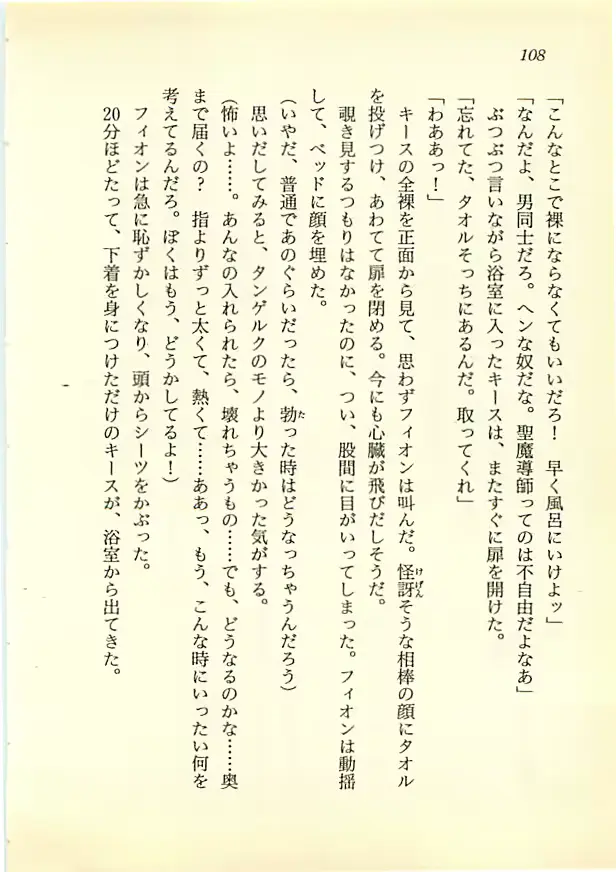 108
「こんなとこで裸にならなくてもいいだろ！　早く風呂にいけよッ」
「なんだよ、男同士だろ。ヘンな奴だな。聖魔導師ってのは不自由だよなあ」
ぶつぶつ言いながら浴室に入ったキースは、またすぐに扉を開けた。
「忘れてた、タオルそっちにあるんだ。取ってくれ」
「わああっ！」
キースの全裸を正面から見て、思わずフィオンは叫んだ。怪訝そうな相棒の顔にタオル
を投げつけ、あわてて扉を閉める。今にも心臓が飛びだしそうだ。
覗き見するつもりはなかったのに、つい、股間に目がいってしまった。フィオンは動揺
して、ベッドに顔を埋めた。
（いやだ、普通であのぐらいだったら、勃った時はどうなっちゃうんだろう）
思いだしてみると、タンゲルクのモノより大きかった気がする。
（怖いよ……。あんなの入れられたら、壊れちゃうもの……でも、どうなるのかな……奥
まで届くの？　指よりずっと太くて、熱くて……ああっ、もう、こんな時にいったい何を
考えてるんだろ。ぼくはもう、どうかしてるよ！）
フィオンは急に恥ずかしくなり、頭からシーツをかぶった。
20分ほどたって、下着を身につけただけのキースが、浴室から出てきた。